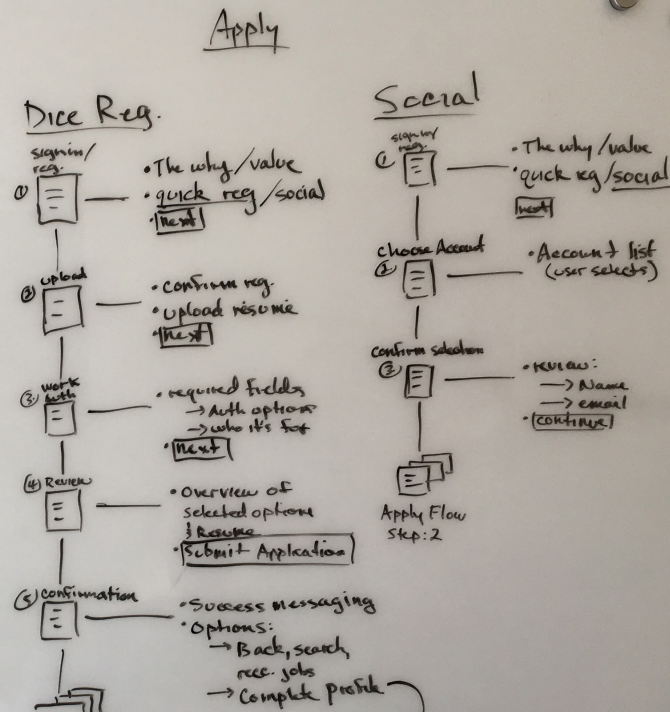 Apply
Dice Reg.
signin/
reg.
①
• The why/value
• quick reg/social
• next
② upload
• confirm reg.
• upload résumé
• next
③ work
Auth
• required fields
→ Auth options
→ who it's for
• next
④ Review
• overview of
selected options
& Resume
• Submit Application
⑤ confirmation
• Success messaging
• Options:
→ Back, search,
rec. jobs
→ Complete profile
Social
signin/
reg.
①
• The why/value
• quick reg/social
next
choose Account
②
• Account list
(user selects)
confirm selection
③
• review:
→ Name
→ email
• continue
Apply Flow
Step: 2